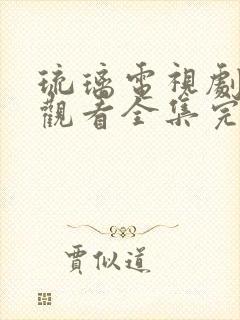 琉璃電視劇
觀看全集完
賈似道